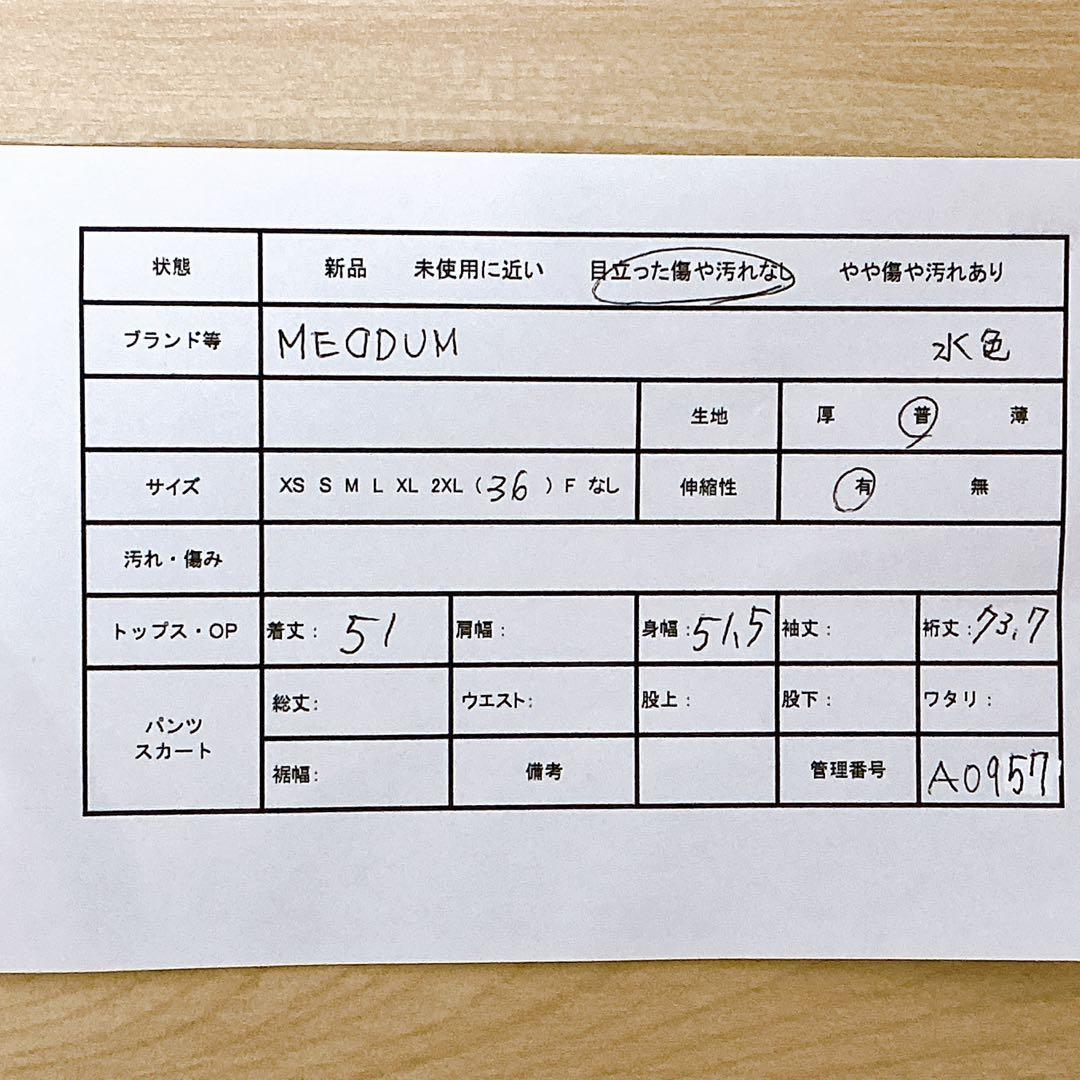 状態 新品 未使用に近い 目立った傷や汚れなし やや傷や汚れあり
ブランド等 MEDDUM 水色
生地 厚 普 薄
サイズ XS S M L XL 2XL (36) F なし 伸縮性 有 無
汚れ・傷み
トップス・OP 着丈: 51 肩幅: 身幅: 51,5 袖丈: 裄丈: 73,7
パンツ
スカート
総丈: ウエスト: 股上: 股下: ワタリ:
裾幅: 備考 管理番号 A0957